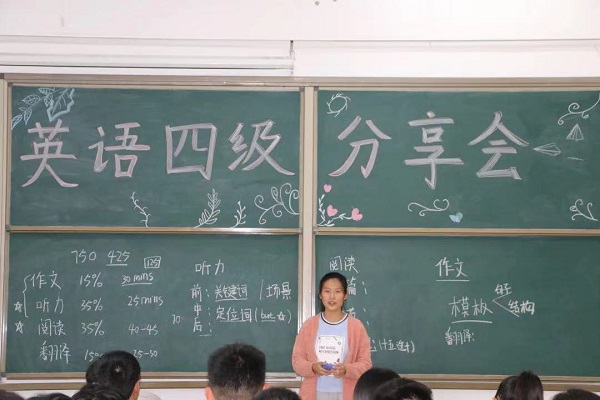 英语四级 分享会
750 425
作文 15% 30 mins
听力 35% 25 mins
阅读 35% 40-45
翻译 15% 25-30
听力
前：关键词 / 场景
中：
后：定位词 (but☆)
阅读
篇：
(十五选十)
作文
模板
结构
翻译：